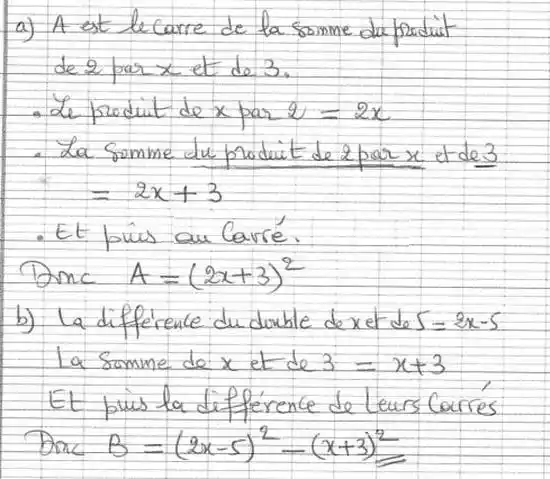 a) A est le carre de la somme du produit
de 2 par x et de 3.
• Le produit de x par 2 = 2x
• La somme du produit de 2 par x et de 3
= 2x + 3
• Et puis au Carré.
Donc A = (2x+3)²
b) La différence du double de x et de 5 = 2x-5
La somme de x et de 3 = x+3
Et puis la différence de leurs Carrés
Donc B = (2x-5)² - (x+3)²